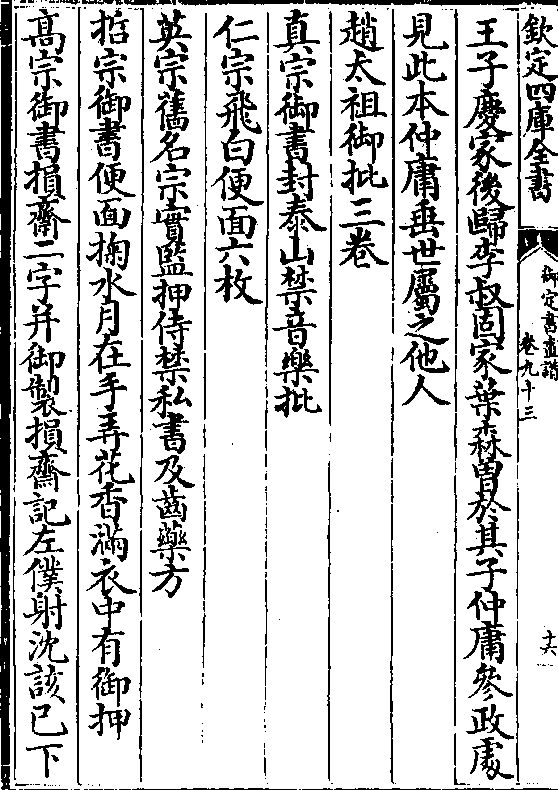 欽定四庫全書
御定書畫譜
卷九十三
十六
王子慶家後歸李叔固家葉森曽於其子仲庸參政處
見此本仲庸垂世屬之他人
趙太祖御批三卷
真宗御書封泰山禁音樂批
仁宗飛白便面六枚
英宗舊名宗實監押侍禁私書及齒藥方
哲宗御書便面掬水月在手弄花香滿衣中有御押
髙宗御書損齋二字并御製損齋記左僕射沈該已下